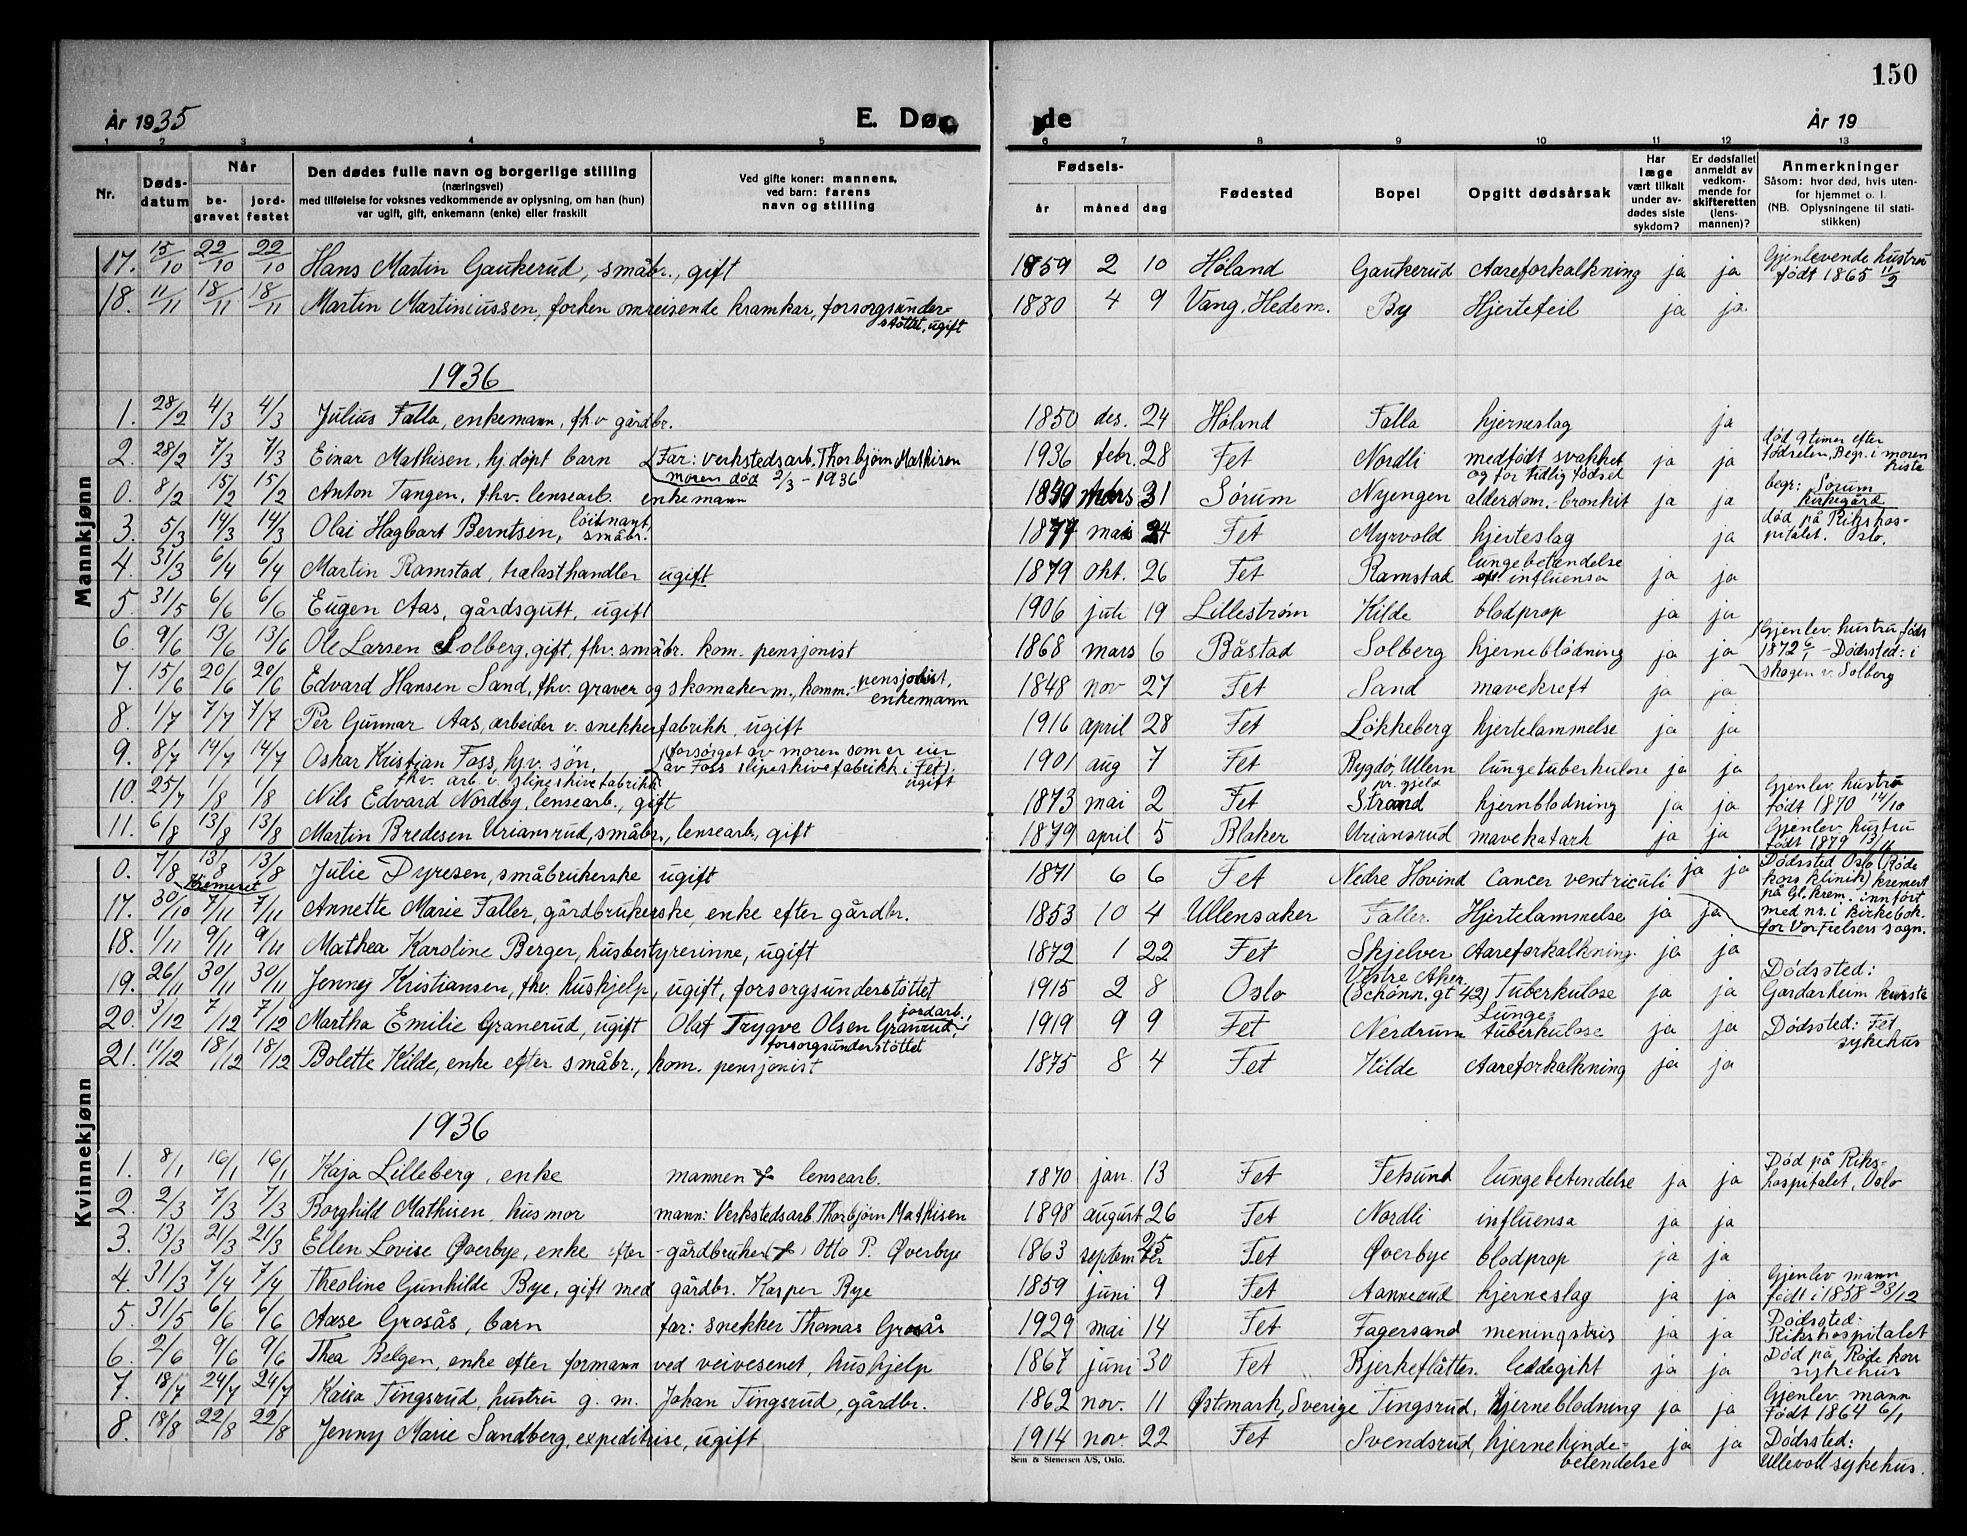 150
År 1935 E. Dø de År 19
1 2 3 4 5 6 7 8 9 10 11 12 13
Nr. Døds-datum Når be-gravet jord-festet Den dødes fulle navn og borgerlige stilling (næringsvei) med tilføielse for voksnes vedkommende av oplysning, om han (hun) var ugift, gift, enkemann (enke) eller fraskilt Ved gifte koner: mannens, ved barn: farens navn og stilling Fødsels- år måned dag Fødested Bopel Opgitt dødsårsak Har læge vært tilkalt under av-dødes siste sykdom? Er dødsfallet anmeldt av vedkom-mende for skifteretten (lens-mannen)? Anmerkninger Såsom: hvor død, hvis uten-for hjemmet o. l. (NB. Oplysningene til stati-stikken)
Mannkjønn
17. 15/10 22/10 22/10 Hans Martin Gaukerud, småbr., gift 1859 2 10 Høland Gaukerud Aareforkalkning ja ja Gjenlevende hustru født 1865 11/9
18. 11/11 18/11 18/11 Martin Martiniussen, forhen omreisende kramkar, forsorgsunder-støttet, ugift 1880 4 9 Vang, Hedem. By Hjertefeil ja ja
1936
1. 28/2 4/3 4/3 Julius Falla, enkemann, fhv gårdbr. 1850 des. 24 Høland Falla hjerneslag ja
2. 28/2 7/3 7/3 Einar Mathisen, hj.døpt barn Far: verkstedsarb. Thorbjørn Mathisen moren død 2/3-1936 1936 febr. 28 Fet Nordli medfødt svakhet og for tidlig fødsel ja ja død 9 timer efter fødselen, Begr. i moren kiste
0. 8/2 15/2 15/2 Anton Tangen, fhv. lensearb. enkemann 1849 mars 31 Sørum Nyengen alderdom. bronkit ja ja begr: Sørum kirkegård
3. 5/3 14/3 14/3 Olai Hagbart Berntsen, løitnant, småbr. 1877 mai 24 Fet Myrvold hjerteslag ja død på Rikshos-pitalet. Oslo.
4. 31/3 6/4 6/4 Martin Ramstad, trælasthandler ugift 1879 okt. 26 Fet Ramstad lungebetendelse influensa ja ja
5. 31/5 6/6 6/6 Eugen Aas, gårdsgutt, ugift 1906 juli 19 Lillestrøm Kilde blodprop ja ja
6. 9/6 13/6 13/6 Ole Larsen Solberg, gift, fhv. småbr. kom. pensjonist 1868 mars 6 Båstad Solberg hjerneblødning ja ja Gjenlev. hustru født 1872 - Dødssted: i skogen v. Solberg
7. 15/6 20/6 20/6 Edvard Hansen Sand, fhv. graver og skomakerm., komm. pensjonist, enkemann 1848 nov 27 Fet Sand mavekreft ja ja
8. 1/7 7/7 7/7 Per Gunnar Aas, arbeider v. snekkerfabrikk, ugift 1916 april 28 Fet Løkkeberg hjertelammelse ja ja
9. 8/7 14/7 14/7 Oskar Kristian Foss, hj.v. søn, fhv. arb. v. slipeskivefabrikk (forsørget av moren som er eier av Foss slipeskivefabrikk i Fet). ugift 1901 aug 7 Fet Bygdø, Ullern pr.gjeld lungetuberkulose ja ja
10. 25/7 1/8 1/8 Nils Edvard Nordby, lensearb., gift 1873 mai 2 Fet Strand hjernblødning ja ja Gjenlev. hustru født 1870 14/10
11. 6/8 13/8 13/8 Martin Bredesen Uriansrud, småbr., lensearb., gift 1879 april 5 Blaker Uriansrud mavekatarh ja ja Gjenlev. hustru født 1879 13/11
Kvinnekjønn
0. 7/8 13/8 13/8 Kremeret Julie Dyresen, småbrukerske ugift 1871 6 6 Fet Nedre Hovind Cancer ventriculi ja ja Dødssted Oslo (Røde kors klinik) kremert på Gl. krem. innført med nr. i kirkebok. for Vor Frelsers sogn.
17. 30/10 7/11 7/11 Annette Marie Faller, gårdbrukerske, enke efter gårdbr. 1853 10 4 Ullensaker Faller. Hjertelammelse ja ja
18. 1/11 9/11 9/11 Mathea Karoline Berger, husbestyrerinne, ugift 1872 1 22 Fet Skjelver Aareforkalkning. ja ja
19. 26/11 30/11 30/11 Jenney Kristiansen, fhv. hushjelp, ugift, forsorgsunderstøttet 1915 2 8 Oslo Vestre Aker (Schønn. gt 42) Tuberkulose ja ja Dødssted: Gardarheim
20. 3/12 7/12 7/12 Martha Emilie Granerud, ugift Olaf Trygve Olsen Granrud, jordarb. forsorgsunderstøttet 1919 9 9 Fet Nerdrum Lunge-tuberkulose ja ja Dødssted: Fet sykehus
21. 11/12 18/12 18/12 Bolette Kilde, enke efter småbr., kom. pensjonist 1875 8 4 Fet Kilde Aareforkalkning ja ja
1936
1. 8/1 16/1 16/1 Kaja Lilleberg, enke mannen lensearb. 1870 jan. 13 Fet Fetsund lungebetendelse ja ja Død på Riks-hospitalet, Oslo
2. 2/3 7/3 7/3 Borghild Mathisen, husmor mann: Verkstedsarb. Thorbjørn Mathisen 1898 august 26 Fet Nordli influensa ja ja
3. 13/3 21/3 21/3 Ellen Lovise Øverbye, enke efter gårdbruker Otto P. Øverbye 1863 september 25 Fet Øverbye blodprop ja ja
4. 31/3 7/4 7/4 Theoline Gunhilde Bye, gift med gårdbr. Kasper Bye 1859 juni 9 Fet Aannerud hjerneslag ja ja Gjenlev mann født i 1858 23/12
5. 31/5 6/6 6/6 Aase Grosås, barn far: snekker Thomas Grosås 1929 mai 14 Fet Fagersand meningstris ja ja Dødssted: Rikshospitalet
6. 2/6 9/6 9/6 Thea Belgen, enke efter formann ved veivesenet, hushjelp 1867 juni 30 Fet Bjerkeflåtten leddegikt ja ja Død på Røde kors sykehus
7. 18/7 24/7 24/7 Kaisa Tingsrud, hustru g. m. Johan Tingsrud, gårdbr. 1862 nov. 11 Østmark, Sverige Tingsrud, hjerneblødning ja ja Gjenlev. mann Født 1864 6/1
8. 18/8 22/8 22/8 Jenny Marie Sandberg, expeditrise, ugift 1914 nov. 22 Fet Svendsrud, hjernehinde-betendelse ja ja Dødssted: Ullevoll sykehus.
Sem & Stenersen A/S, Oslo.